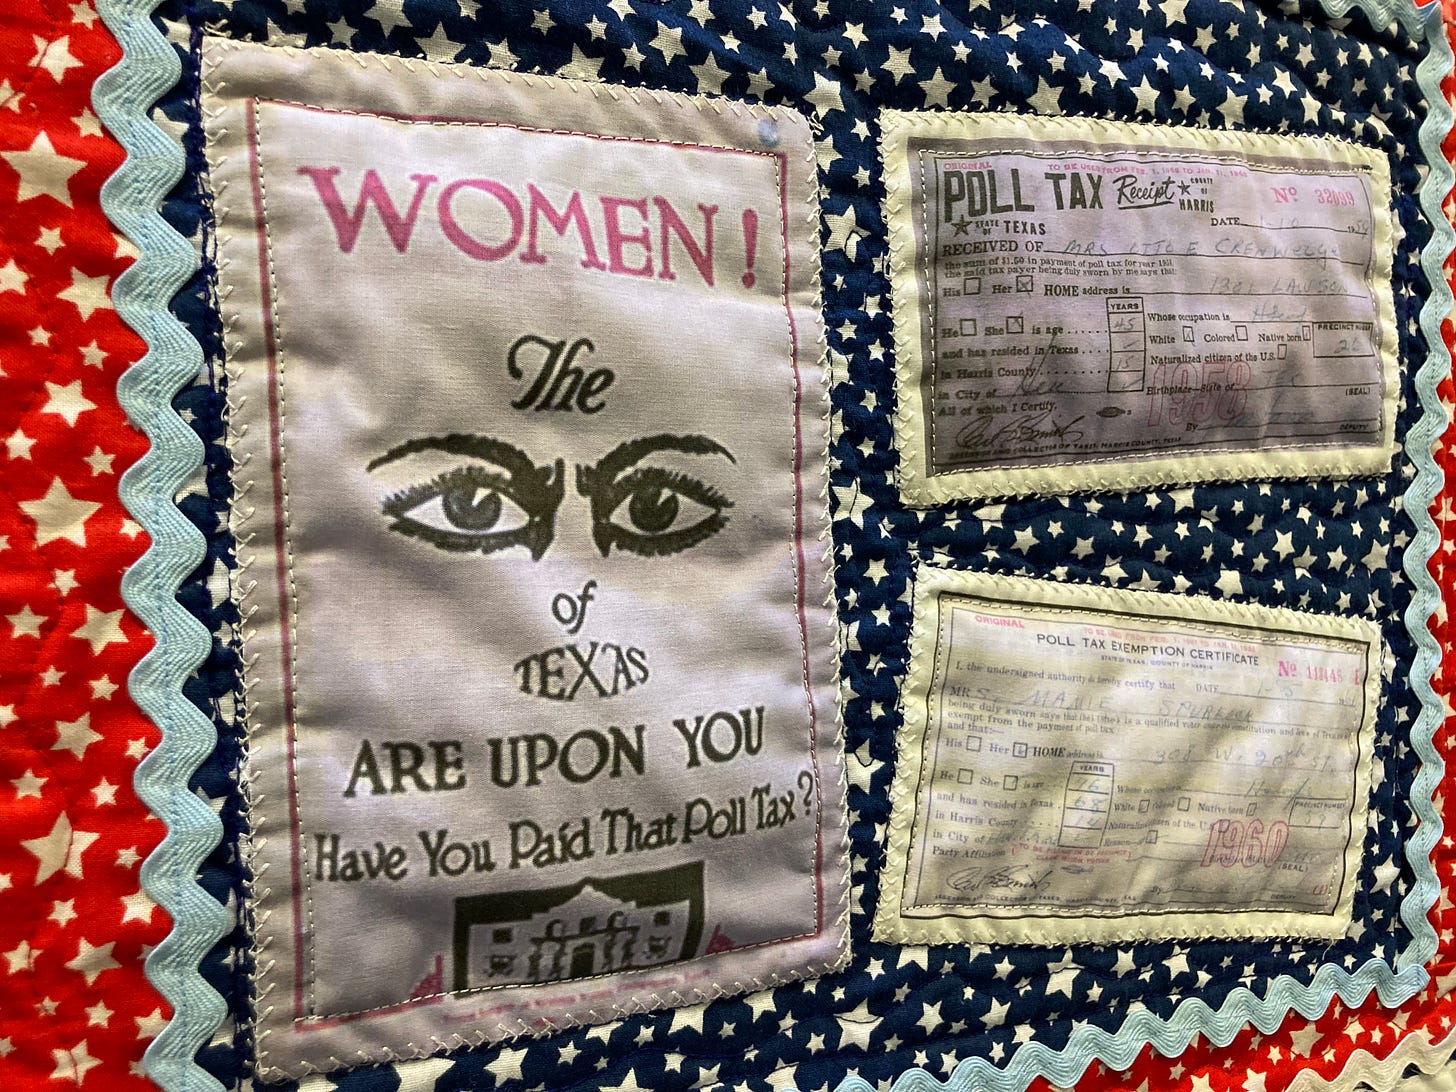 WOMEN!
The
of
TEXAS
ARE UPON YOU
Have You Paid That Poll Tax?
ORIGINAL TO BE USED FROM FEB. 1, 1958 TO JAN. 31, 1960
POLL TAX Receipt COUNTY OF HARRIS
No 32099
STATE OF TEXAS
DATE 1-10
RECEIVED OF MRS
the sum of $1.50 in payment of poll tax for year 1958
the said tax payer being duly sworn by me says that:
His Her HOME address is 1301 LAWSON
YEARS
He She is age 45 Whose occupation is
White Colored Native born PRECINCT NUMBER
and has resided in Texas
Naturalized citizen of the U.S.
in Harris County 15
in City of Birthplace—State of
1958
(SEAL)
All of which I Certify.
By DEPUTY
ASSESSOR AND COLLECTOR OF TAXES, HARRIS COUNTY, TEXAS
ORIGINAL
POLL TAX EXEMPTION CERTIFICATE
STATE OF TEXAS, COUNTY OF HARRIS
No
I, the undersigned authority do hereby certify that DATE 1-5
MRS. MAMIE
being duly sworn says that (he) (she) is a qualified voter under constitution and laws of Texas
exempt from the payment of poll tax
and that:—
His Her HOME address is 308 W. 20th St.
YEARS
He She is age Whose occupation is
and has resided in Texas 68 White Colored Native born PRECINCT NUMBER
in Harris County Naturalized citizen of the U.S.
in City of
Party Affiliation
1960
(SEAL)
By DEPUTY